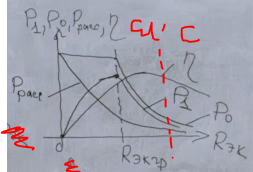 P₁, P₀, Pрасс, η
С
η
Pрасс
P₁
P₀
0
Rэкгр
Rэк